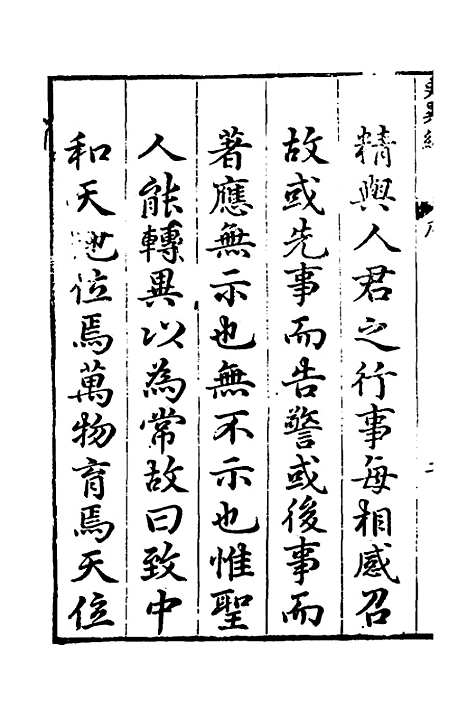 精與人君之行事每相感召
故或先事而告警或後事而
著應無示也無不示也惟聖
人能轉異以為常故曰致中
和天地位焉萬物育焉天位